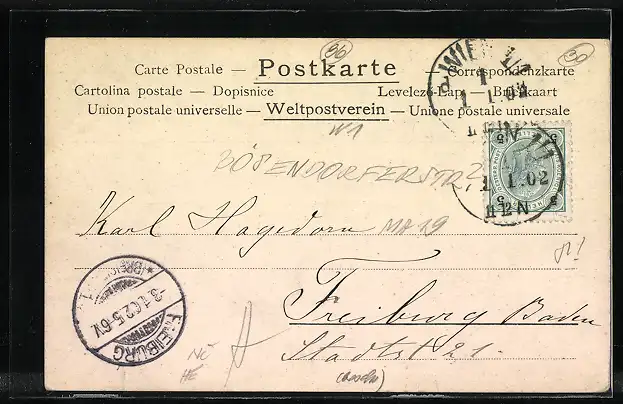 96
30
Carte Postale — Postkarte — Correspondenzkarte
Cartolina postale — Dopisnice Levelező-Lap — Brefkaart
Union postale universelle — Weltpostverein — Unione postale universale
WIEN 1/1
1 1.02
W1
BÖSENDORFERSTR, 2
WIEN 1/1
1 1.02
5
5
Karl Hagedorn MA 19
Freiburg Baden
Stadtstr 21.
FREIBURG
3.1.02.5-6V.
NÖ
HE